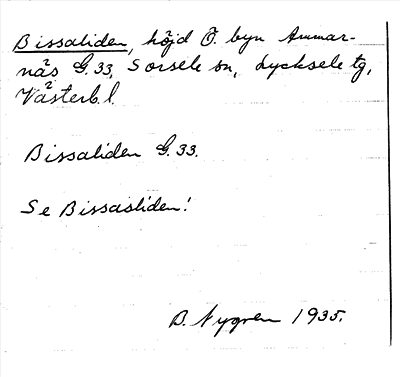 Bissaliden, höjd Ö. byn Ammar-
näs G.33, Sorsele sn, Lycksele tg,
Västerb.l.
Bissaliden G.33.
Se Bissasliden!
B. Nygren 1935.